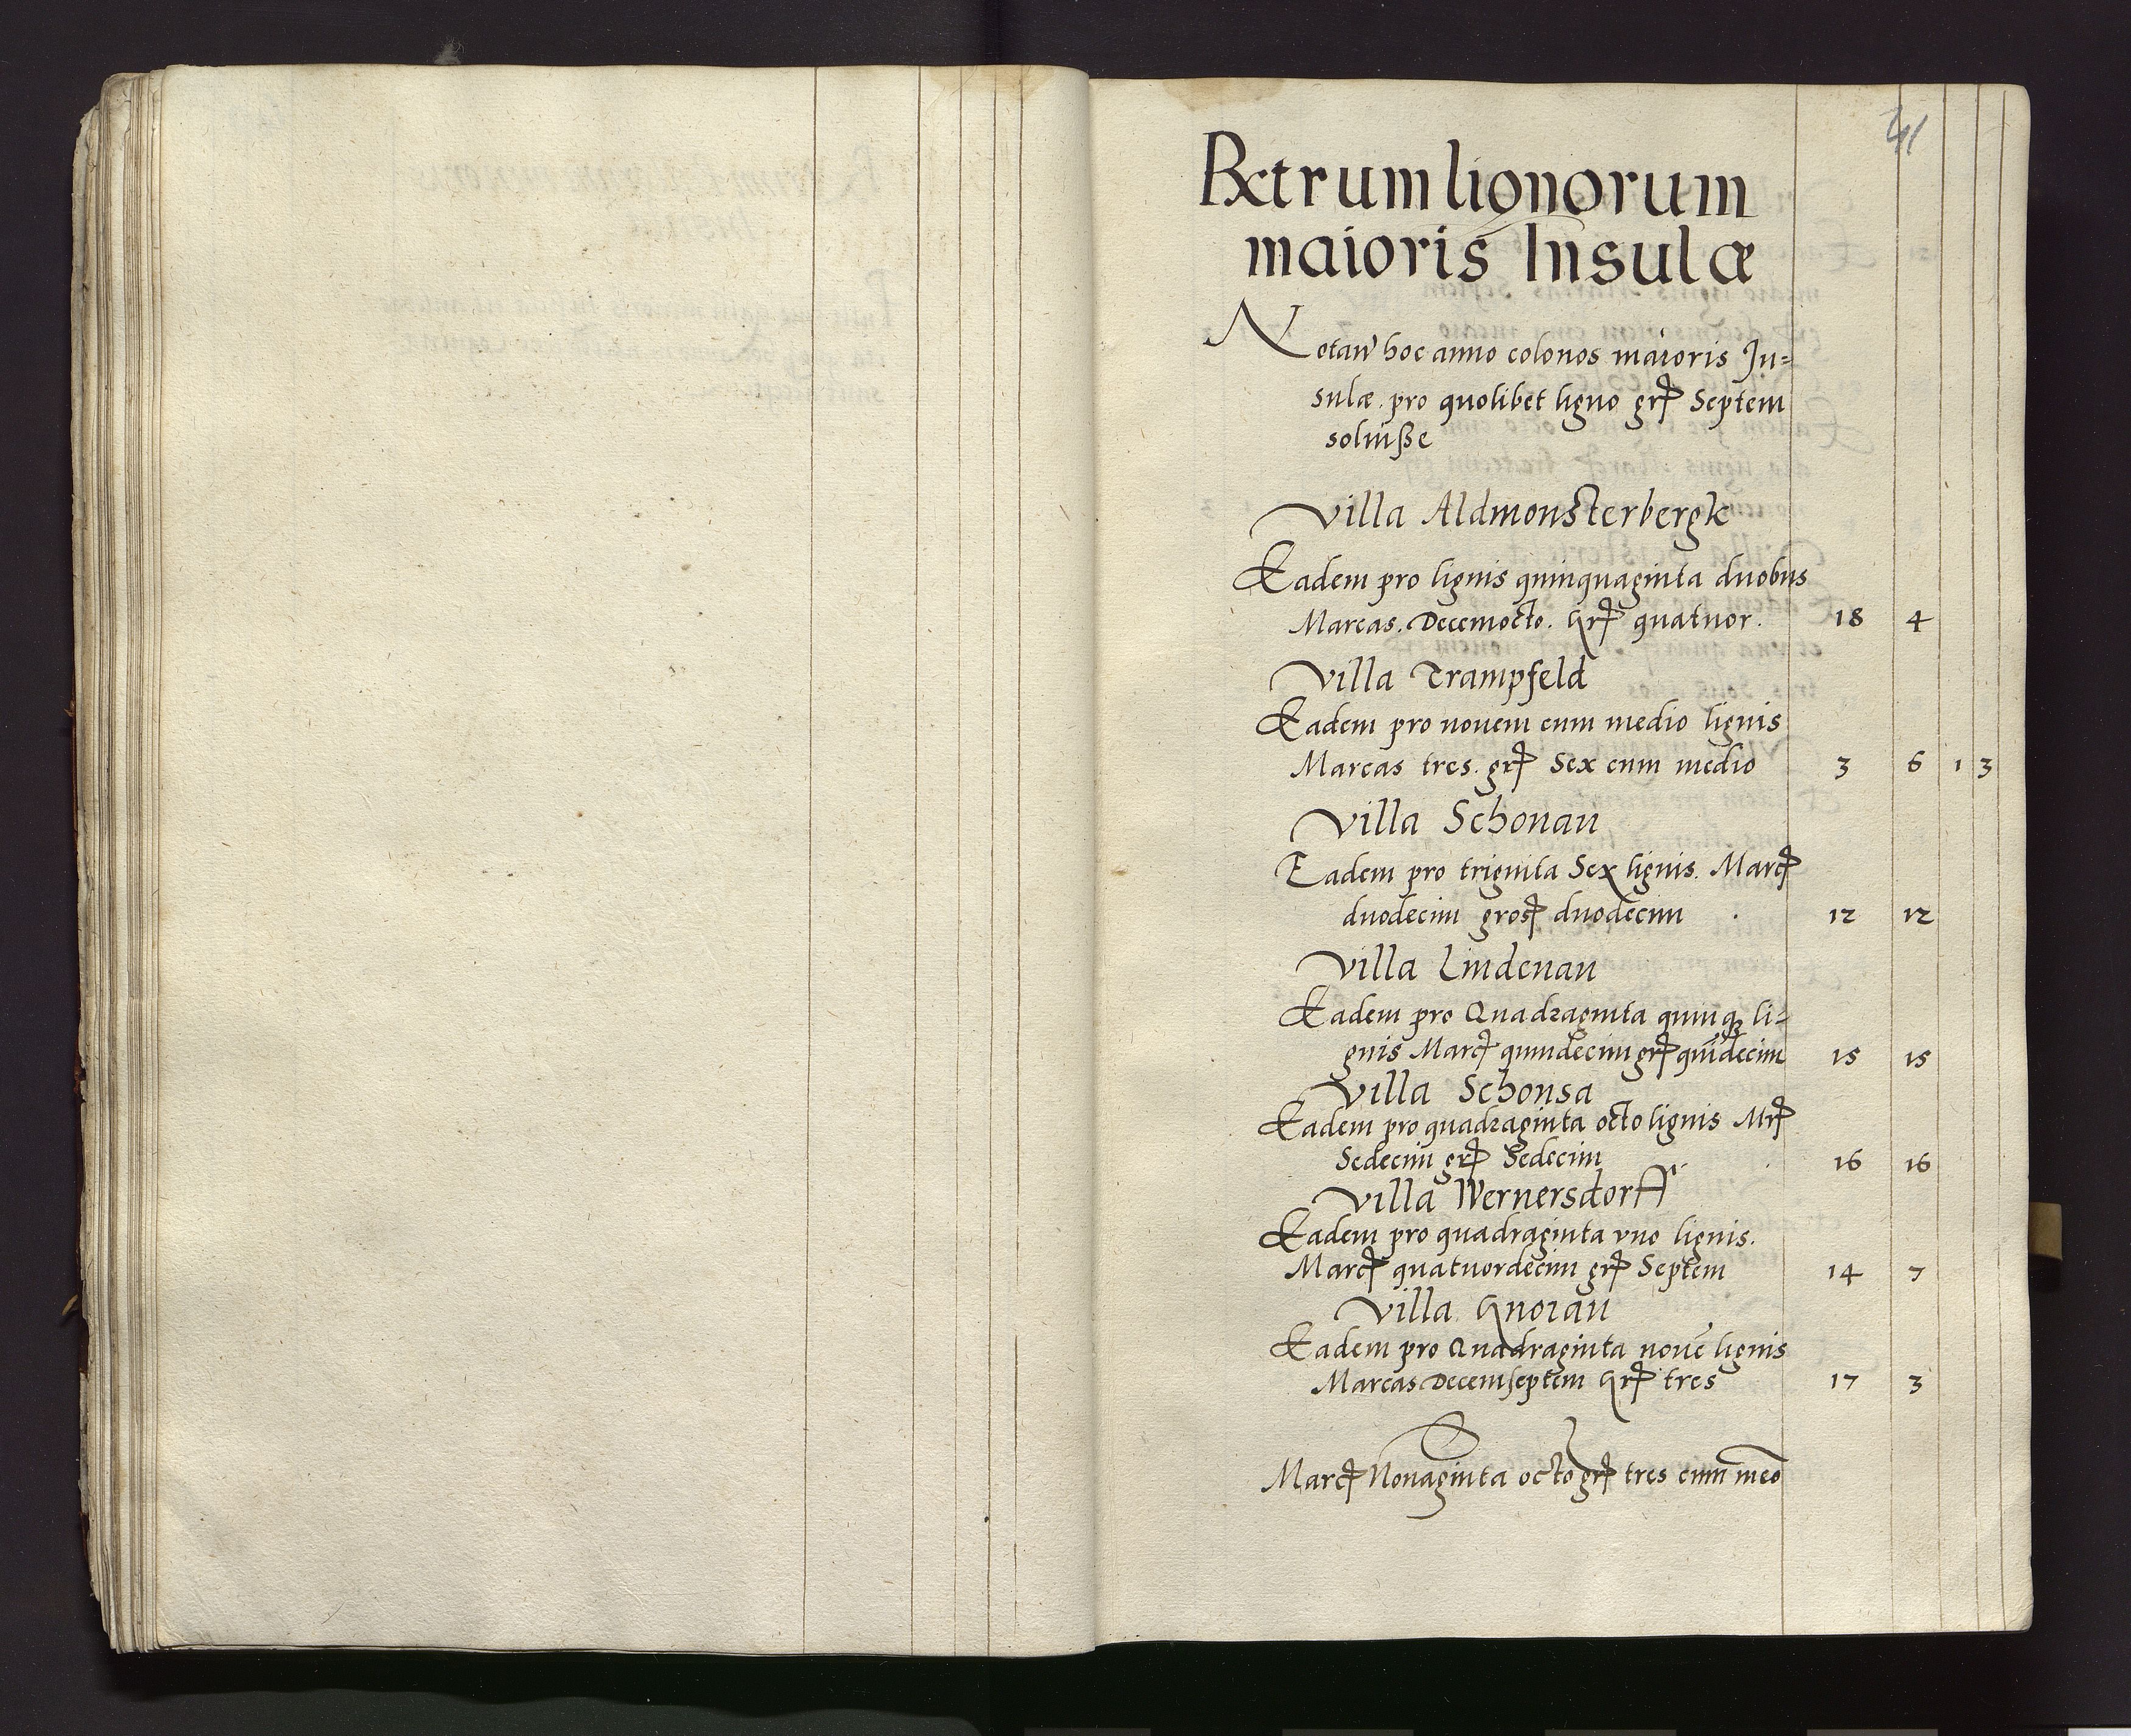 41
Rctrum lignorum
maioris Insulæ
Notaw hoc anno colonos maioris In=
sulæ. pro quolibet ligno gr Septem
soluiße
Villa Aldmonsterbergk
Eadem pro lignis quinquaginta duobus
Marcas. Decemocto. Gr quatuor. 18 4
Villa Trampfeld
Eadem pro nouem cum medio lignis
Marcas tres. gr Sex cum medio 3 6 1 3
Villa Schonau
Eadem pro triginta Sex lignis. Marc
duodecim gros duodecim 12 12
Villa Lindenau
Eadem pro Quadraginta quinq li=
gnis Marc quindecim gr quīdecim 15 15
Villa Schonsa
Eadem pro quadraginta octo lignis Mr
Sedecim gr Sedecim 16 16
Villa Wernersdorff
Eadem pro quadraginta vno lignis.
Marc quatuordecim gr Septem 14 7
Villa Gnorau
Eadem pro Quadraginta nouē lignis
Marcas Decemseptem Gr tres 17 3
Marc Nonaginta octo gr tres cum meō